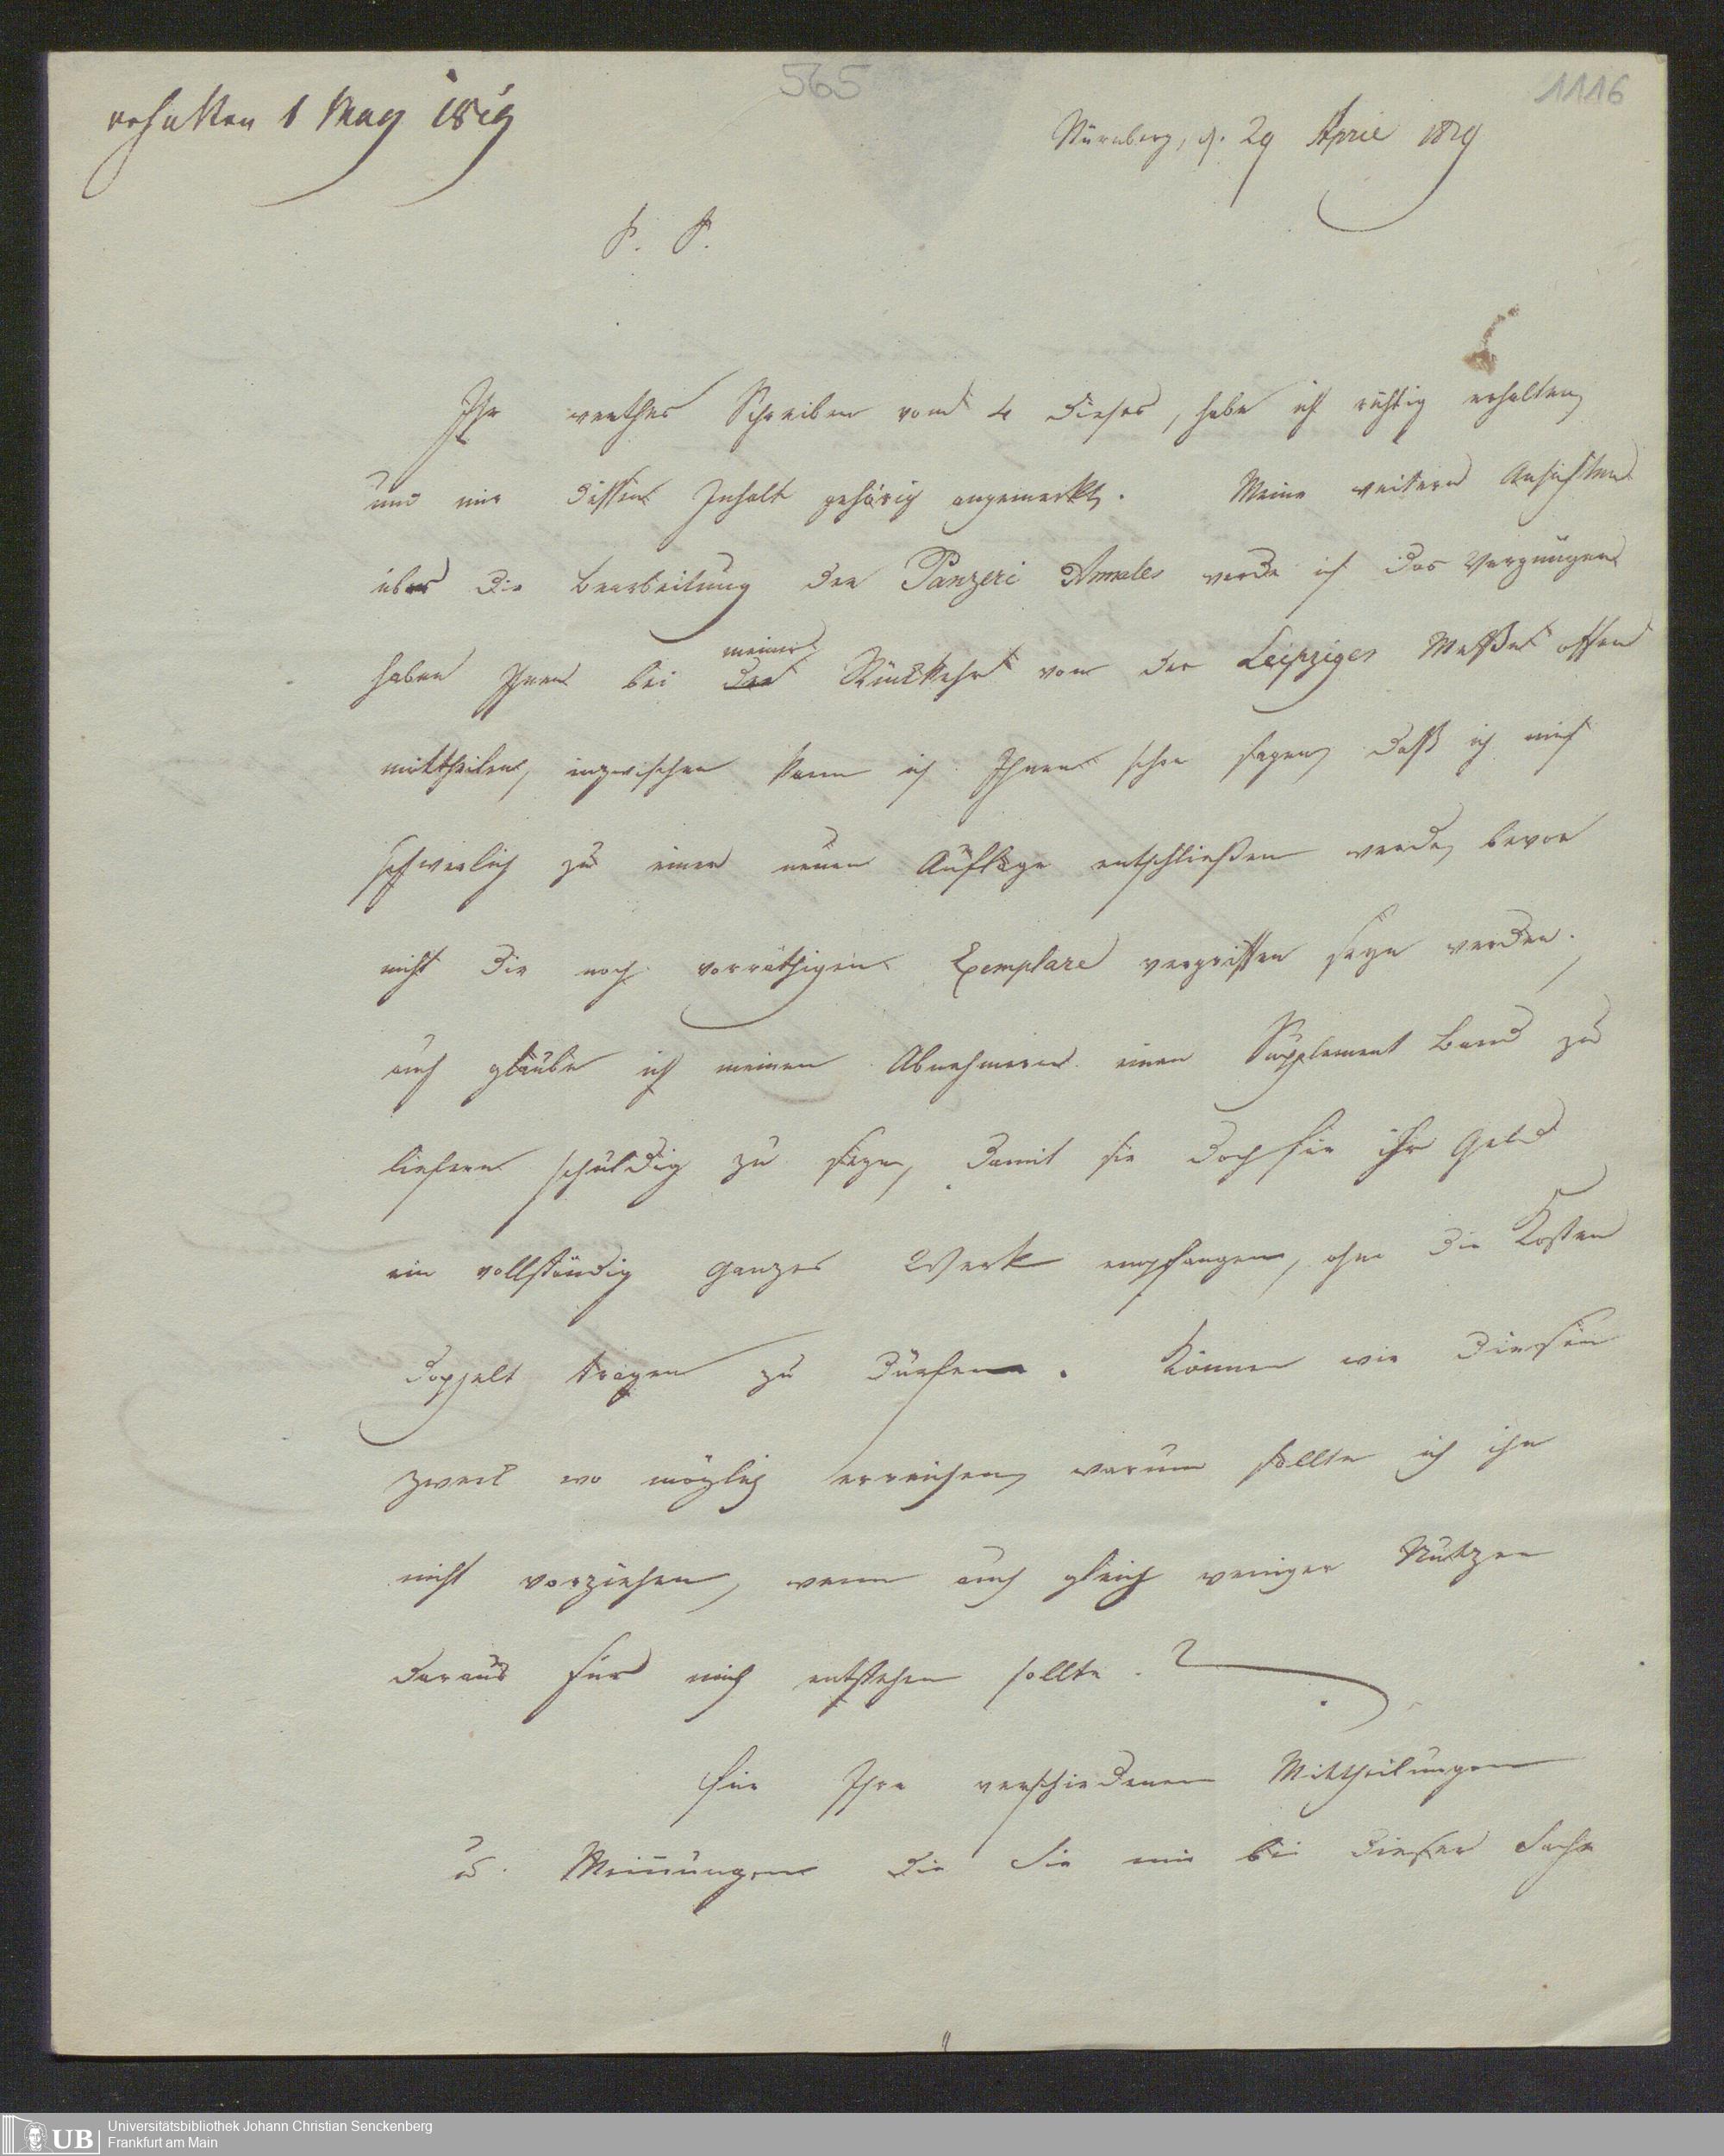 565
1116
erhalten 1 May 1829
Nürnberg, d. 29 April 1829
P. P.
Ihr werthes Schreiben vom 4 dieses, habe ich richtig erhalten,
und mir dessen Inhalt gehörig angemerkt. Meine weitern Ansichten
über die Bearbeitung der Panzeri Annales werde ich das Vergnügen
haben Ihnen bei der meiner Rückkehr von der Leipziger Messe offen
mittheilen, inzwischen kann ich Ihnen schon sagen, daß ich mich
schwerlich zu einer neuen Auflage entschließen werde, bevor
nicht die noch vorräthigen Exemplare vergriffen seyn werden.
auch glaube ich meinen Abnehmern einen Supplement Band zu
liefern schuldig zu seyn, damit sie doch für ihr Geld
ein vollständig ganzes Werk empfangen, ohne die Kosten
doppelt tragen zu dürfen. Können wir diesen
Zweck wo möglich erreichen, warum sollte ich ihn
nicht vorziehen, wenn auch gleich weniger Nutzen
daraus für mich entstehen sollte. ?
Für Ihre verschiedenen Mittheilungen
u. Meinungen die Sie mir bei dieser Sache
UB
Universitätsbibliothek Johann Christian Senckenberg
Frankfurt am Main